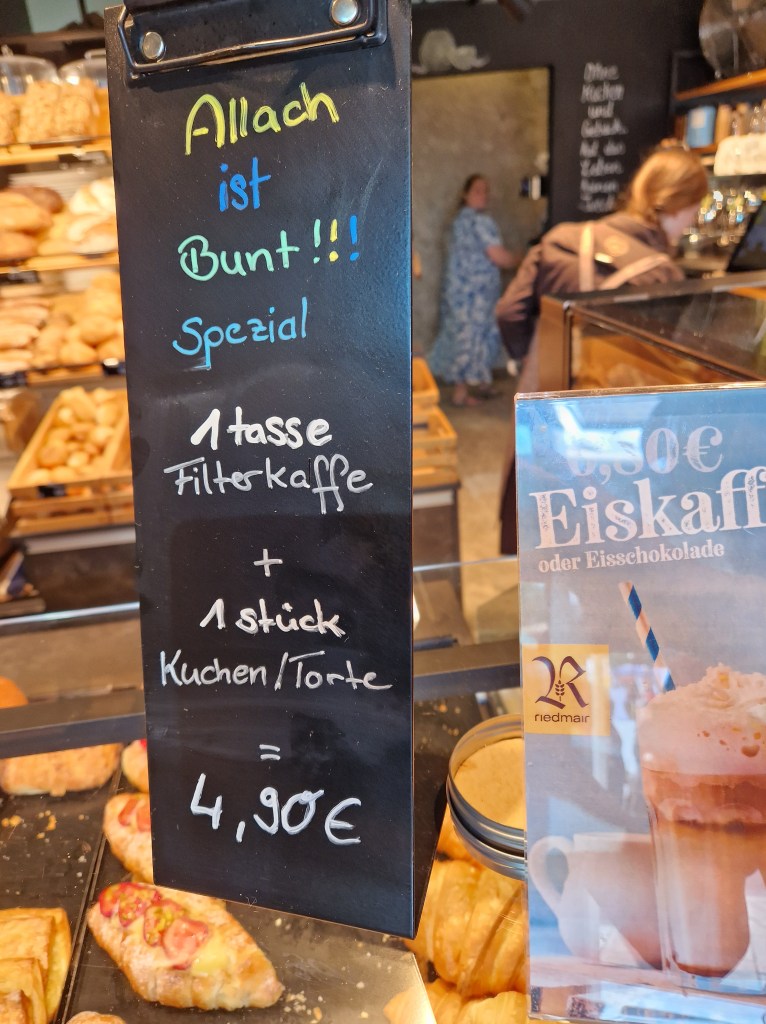 Allach
ist
Bunt!!!
Spezial
1 tasse
Filterkaffe
+
1 stück
Kuchen/Torte
=
4,90€
Ohne
und
Eiskaff
oder Eisschokolade
R
riedmair